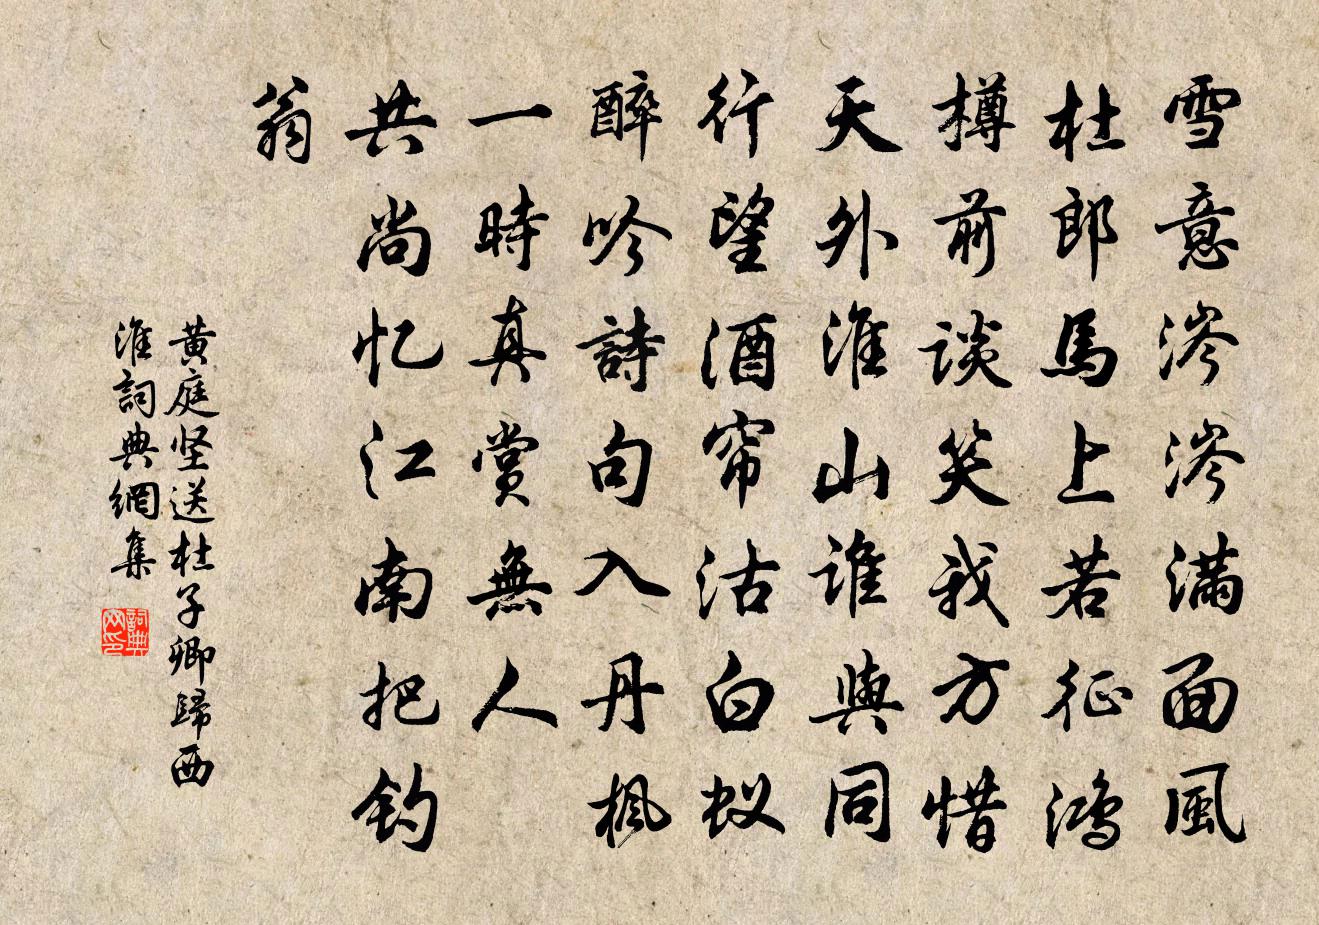 雪意涔涔满面風
杜郎馬上若征鸿
樽前谈笑我方惜
天外淮山谁與同
行望酒帘沽白蚁
醉吟詩句入丹枫
一時真賞無人
共尚忆江南把钓
翁
黄庭坚送杜子卿歸西
淮詞典網集
詞典
网印